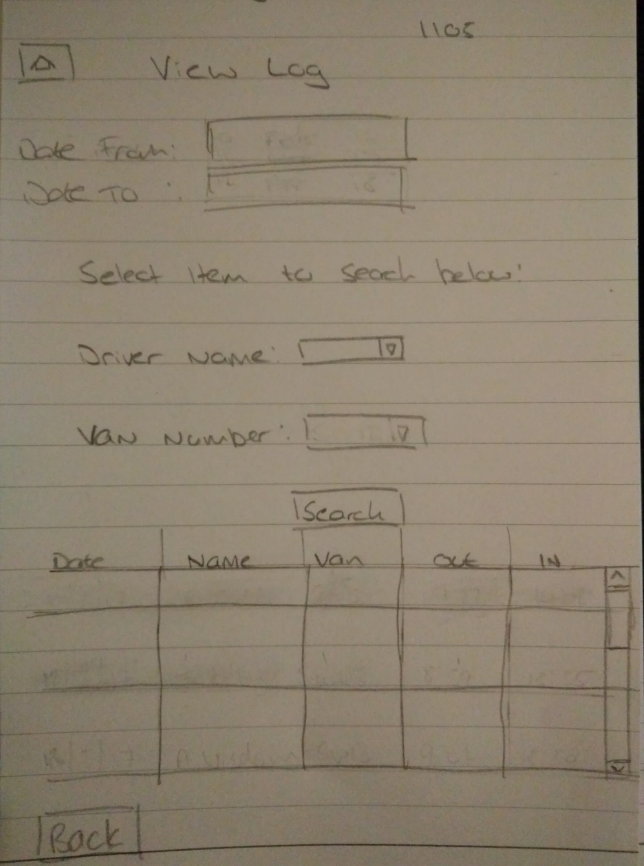 1105
View Log
Date From:
Date To :
Select item to search below:
Driver Name:
Van Number:
Search
Date Name Van Out IN
Back